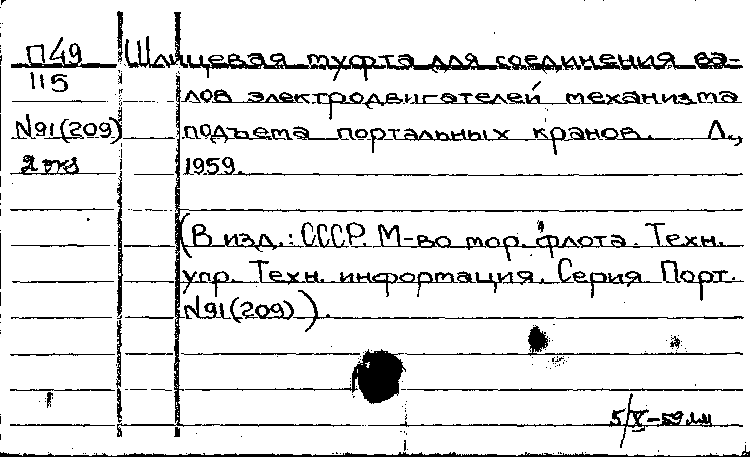 П49
115
N91(209)
2 экз
Шлицевая муфта для соединения ва-
лов электродвигателей механизма
подъема портальных кранов. Л.,
1959.
(В изд.: СССР. М-во мор. флота. Техн.
упр. Техн. информация. Серия Порт.
N91(209)).
5/V-59